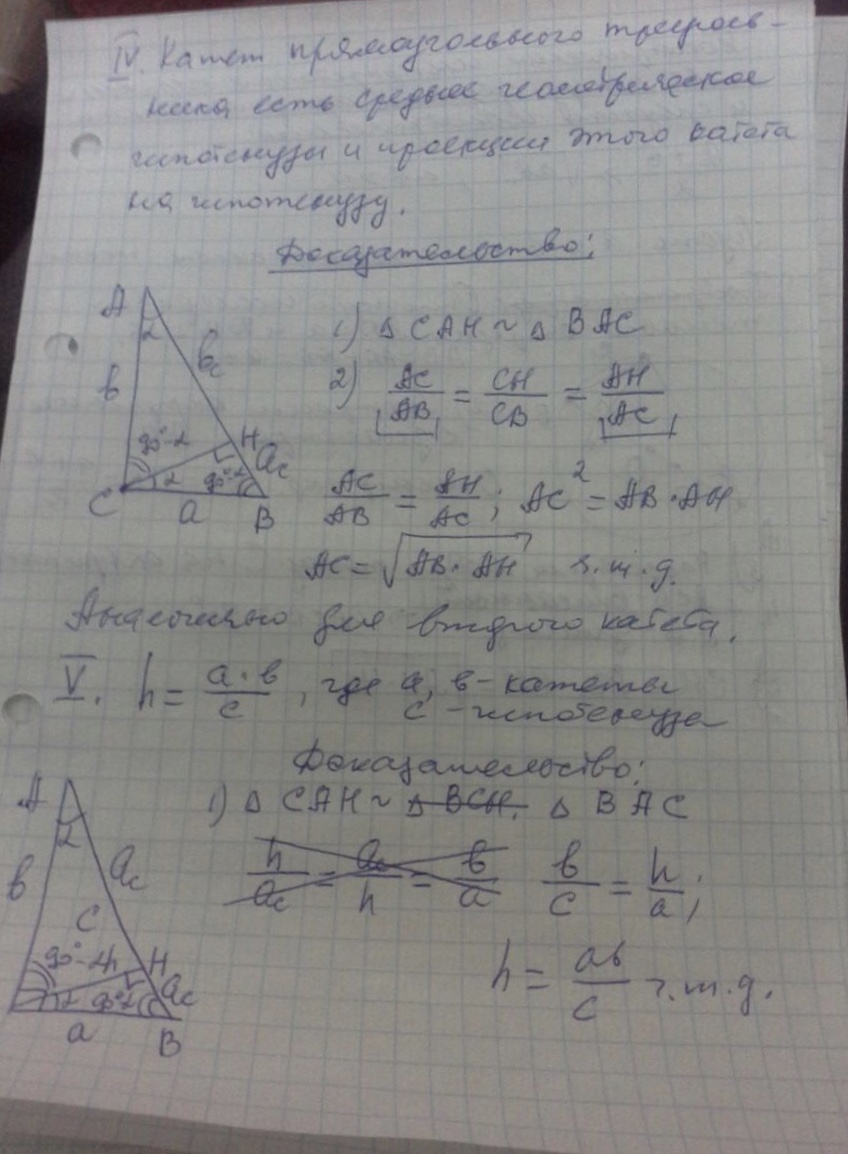 IV. Катет прямоугольного треуголь-
ника есть среднее геометрическое
гипотенузы и проекции этого катета
на гипотенузу.
Доказательство:
A
α
в
вc
1) Δ CAH ~ Δ BAC
2) AC/AB = CH/CB = AH/AC
90°-α
H
ac
α
90°-α
C
a
B
AC/AB = AH/AC; AC² = AB·AH
AC = √AB·AH ч.т.д.
Аналогично для второго катета.
V. h = a·в/c, где a, в - катеты
c - гипотенуза
Доказательство:
A
α
1) Δ CAH ~ Δ BCH. Δ BAC
в
ac
h/ac = ac/h = в/a в/c = h/a;
C
90°-α
h
H
ac
α
90°-α
a
B
h = aв/c ч.т.д.